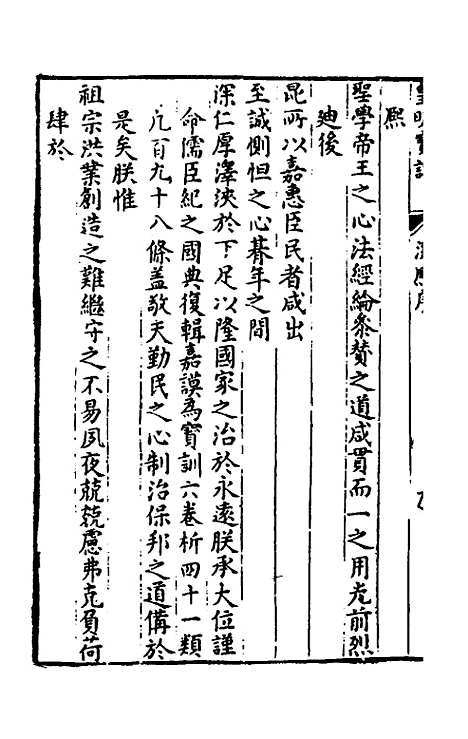 皇明寶訓
熙
聖學帝王之心法經綸叅賛之道咸貫而一之用光前烈
廸後
昆所以嘉惠臣民者咸出
至誠惻怛之心朞年之間
深仁厚澤浹於下足以隆國家之治於永遠朕承大位謹
命儒臣紀之國典復輯嘉謨為寳訓六卷析四十一類
凡百九十八條盖敬天勤民之心制治保邦之道備於
是矣朕惟
祖宗洪業創造之難繼守之不易夙夜兢兢慮弗克負荷
肆於